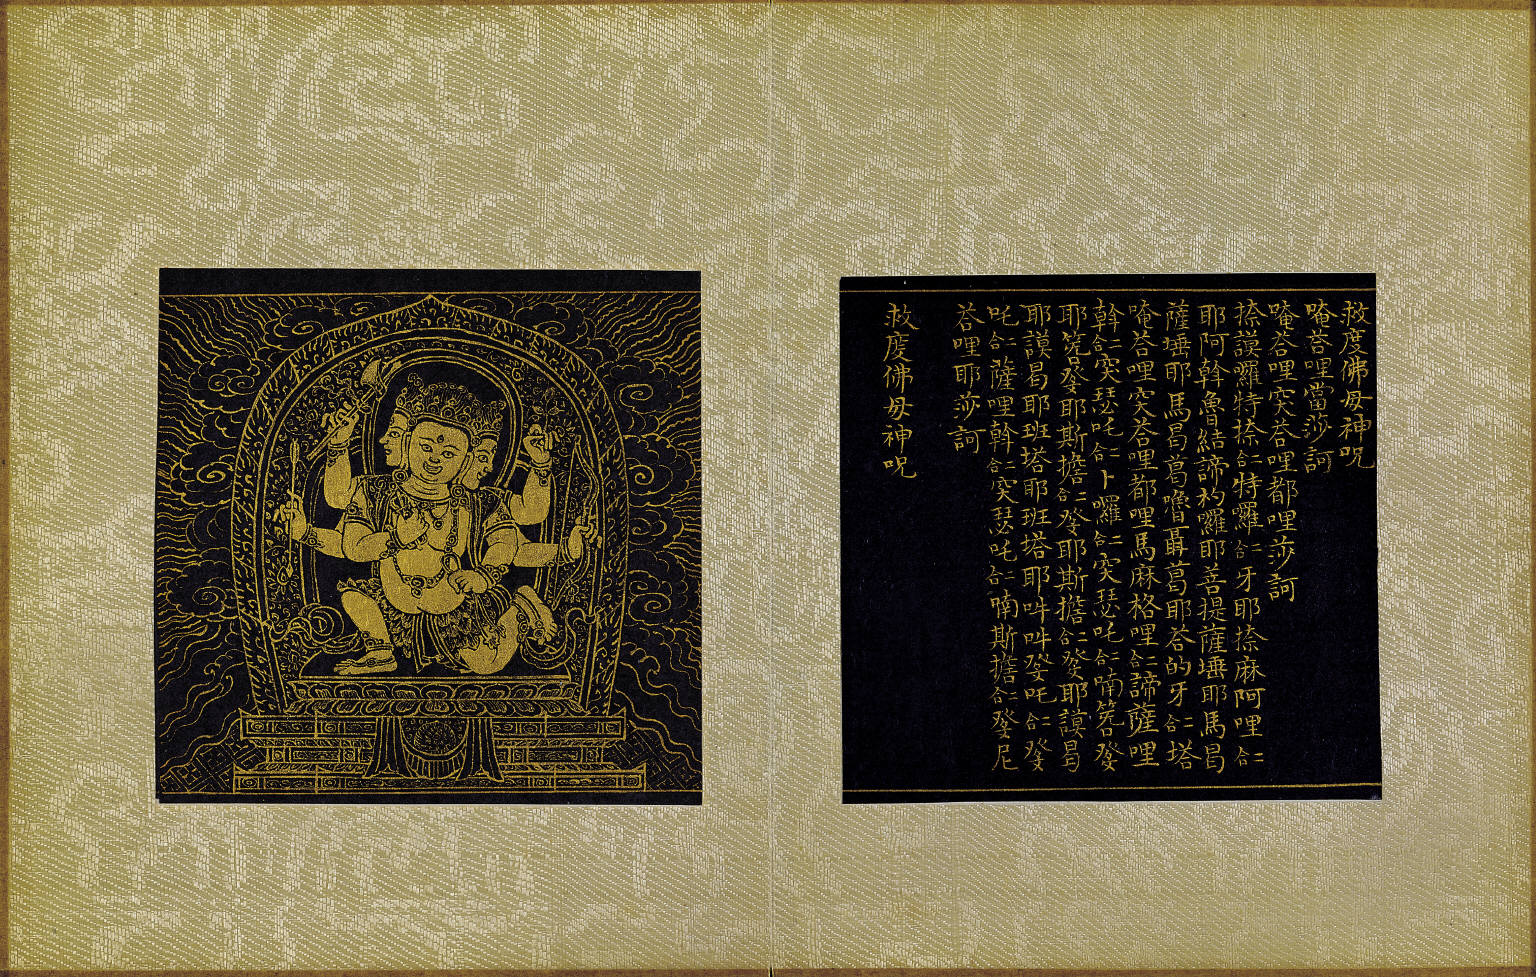 救度佛母神呪
唵荅哩當莎訶
唵荅哩突荅哩都哩莎訶
捺謨囉特捺二合特囉二合牙耶捺麻阿哩二合
耶阿斡魯結諦囉耶菩提薩埵耶馬曷
薩埵耶馬曷葛嚕聶葛耶荅的牙二合塔
唵荅哩突荅哩都哩馬麻格哩二合諦薩哩
斡二合突瑟吒二合卜囉二合突瑟吒二合喃箲癹
耶箲癹耶斯擔二合癹耶斯擔二合癹耶謨曷
耶謨曷耶班塔耶班塔耶吽吽癹吒二合癹
吒二合薩哩斡二合突瑟吒二合喃斯擔二合癹尼
荅哩耶莎訶
救度佛母神呪